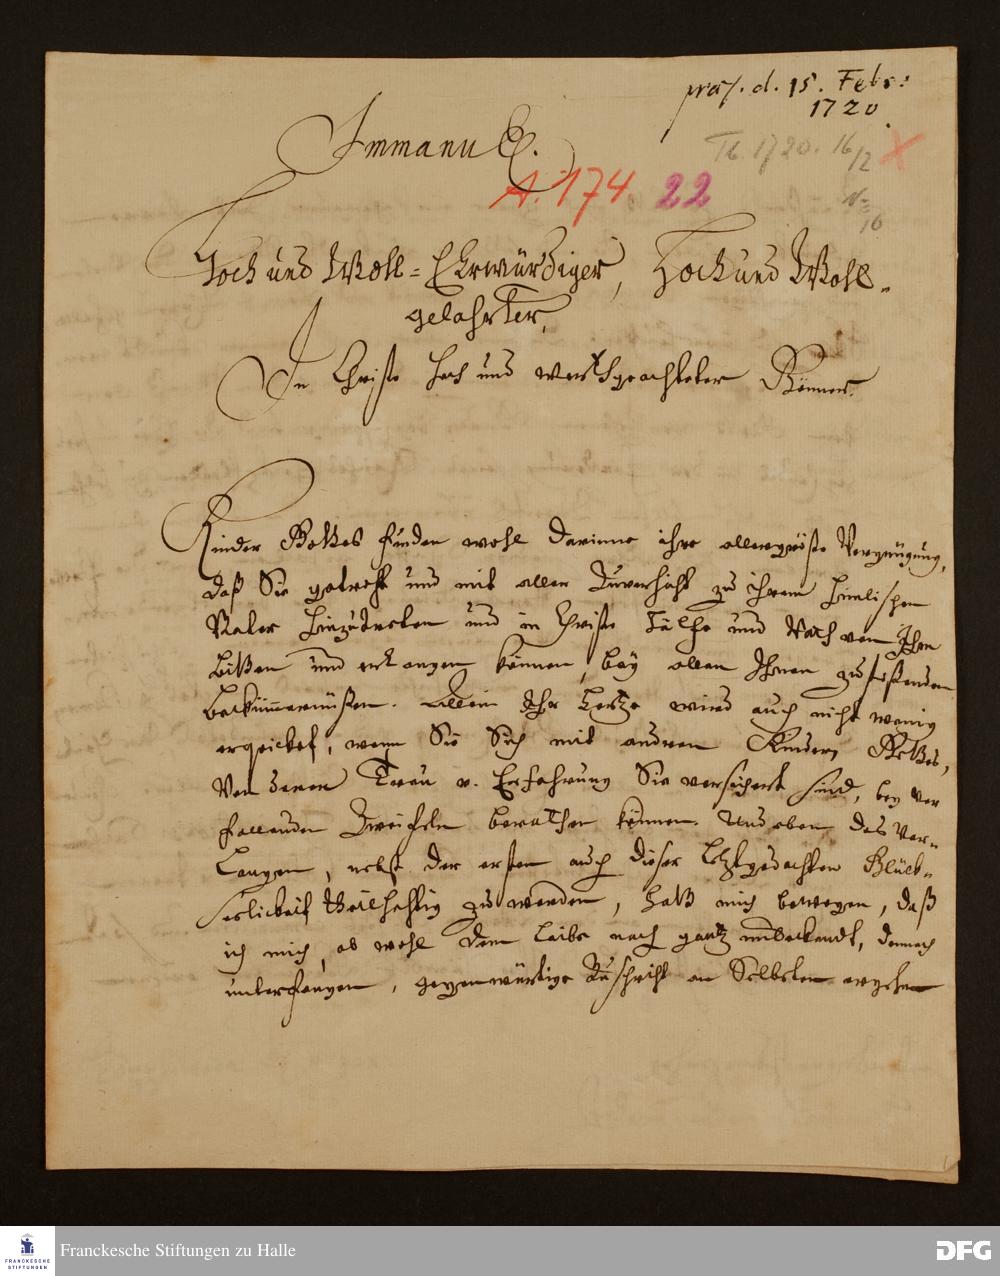 præs. d. 15. Febr:
1720.
Immanuel.
Tb. 1720. 16/2 X
A. 174 22
N=
16
Hoch und Wohl=Ehrwürdiger, Hoch und Wohl=
gelahrter,
In Christo Hoch und werthgeachteter Gönner.
Kinder Gottes finden wohl darinne ihre allergröste Vergnügung,
daß Sie getrost und mit aller Zuversicht zu ihrem himlischen
Vater hinzutreten und in Christo Hülfe und Rath von Ihm
bitten und erlangen können, bey allen Ihnen zustoßenden
Bekümmernüßen. Allein Ihr Hertze wird auch nicht wenig
erqvicket, wenn Sie Sich mit andern Kindern Gottes,
Von deren Treu u. Erfahrung Sie versichert sind, bey vor
fallenden Zweifeln berathen können. Und eben das Ver=
langen, nebst der ersten auch dieser letztgedachten Glück=
seelickeit theilhafftig zu werden, hatt mich bewogen, daß
ich mich, ob wohl dem Leibe nach gantz unbekandt, dennoch
unterfangen, gegenwärtige Zuschrifft an Selbten ergehen
Franckesche Stiftungen zu Halle
FRANCKESCHE
STIFTUNGEN
DFG